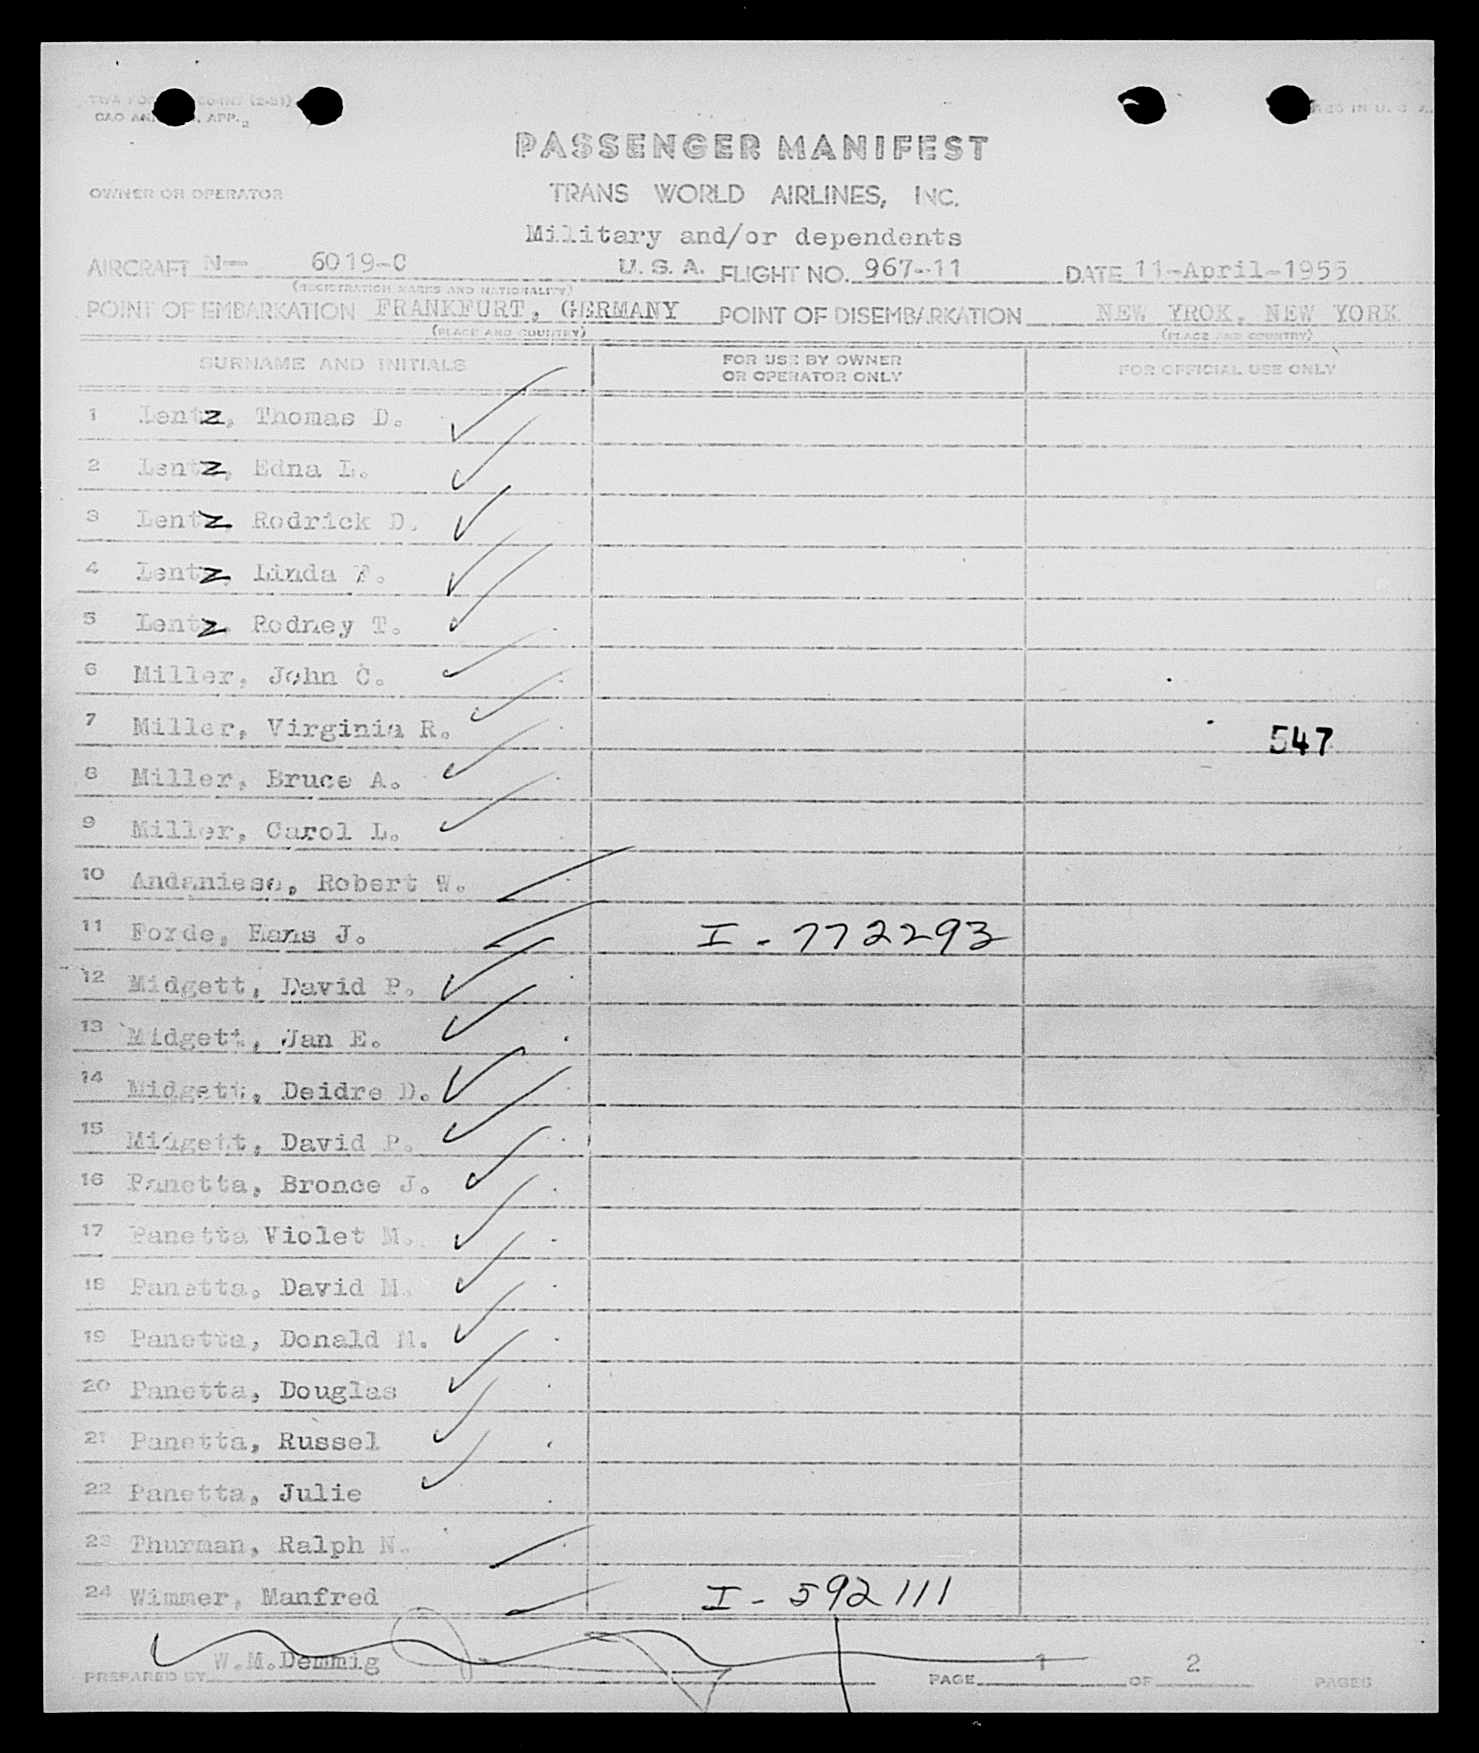 CAO AN , APP. 2
PASSENGER MANIFEST
OWNER OR OPERATOR TRANS WORLD AIRLINES, INC.
Military and/or dependents
AIRCRAFT N— 6019-C U.S.A. FLIGHT NO. 967-11 DATE 11-April-1955
(REGISTRATION MARKS AND NATIONALITY)
POINT OF EMBARKATION FRANKFURT, GERMANY POINT OF DISEMBARKATION NEW YROK, NEW YORK
(PLACE AND COUNTRY) (PLACE AND COUNTRY)
SURNAME AND INITIALS FOR USE BY OWNER OR OPERATOR ONLY FOR OFFICIAL USE ONLY
1 Lentz, Thomas D.
2 Lentz, Edna L.
3 Lentz Rodrick D.
4 Lentz, Linda F.
5 Lentz, Rodney T.
6 Miller, John C.
7 Miller, Virginia R. 547
8 Miller, Bruce A.
9 Miller, Carol L.
10 Robert W.
11 Forde, Hans J. I - 772293
12 Midgett, David P.
13 Midgett, Jan E.
14 Midgett, Deidre D.
15 Midgett, David P.
16 Panetta, Bronce J.
17 Panetta Violet M.
18 Panetta, David M.
19 Panetta, Donald M.
20 Panetta, Douglas
21 Panetta, Russel
22 Panetta, Julie
23 Thurman, Ralph N.
24 Wimmer, Manfred I - 592111
PREPARED BY W.M.Demmig PAGE 1 OF 2 PAGES